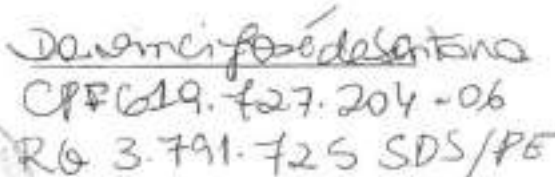 José de Santana
CPF 619.727.204-06
RG 3.791.725 SDS/PE